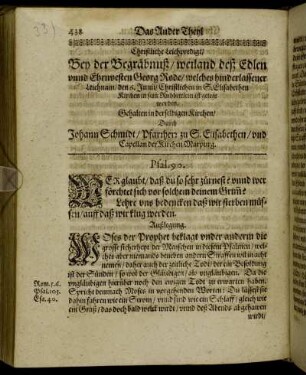 438 Das Ander Theyl
Christliche Leichpredigt/
Bey der Begräbnuß/ weiland deß Edlen
vnnd Ehrnvesten Georg Rode/ welches hinderlassener
Leichnam/ den 8. Christlichen in S. Elisabethen
Kirchen in sein Ruhbettlein
worden.
Gehalten in derselbigen Kirchen/
Durch
Johann Schmidt/ Pfarrherr zu S. Elisabethen/ vnd
Capellan der Kirchen Marpurg.
Psal. 90.
WEr glaubt/ daß du so sehr zürnest? vnnd wer
förchtet sich vor solchem deinem Grim?
Lehre vns bedencken daß wir sterben müs-
sen/ auff daß wir klug werden.
Außlegung.
MOses der Prophet beklagt vnder andern die
grosse sicherheyt der Menschen in diesem Psalmen/ wel-
ches aber niemands neben andern Straffen will in acht
nemen/ daher auch der zeitliche Todt/ der ein Bezahlung
ist der Sünden/ so wol der Gläubigen/ als vngläubigen. Da die
vngläubigen hierüber noch den ewigen Todt zu erwarten haben.
Rom. 5. 6.
Psal. 103.
Esa. 40.
Spricht demnach Moses in vorgehenden Worten: Du lässest sie
dahin fahren wie ein Strom/ vnnd sind wie ein Schlaff/ gleich wie
ein Graß/ das doch bald welck wirdt/ vnnd deß Abends abgehawen
wirdt/